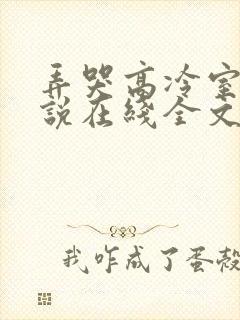 弄哭高冷室
說在綫全文
我咋成了蛋殼